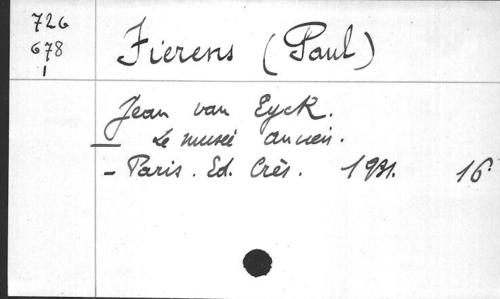 726
678
1
Fierens (Paul)
Jean van Eyck.
— Le musée ancien.
- Paris. Ed. Crès. 1931. 16°